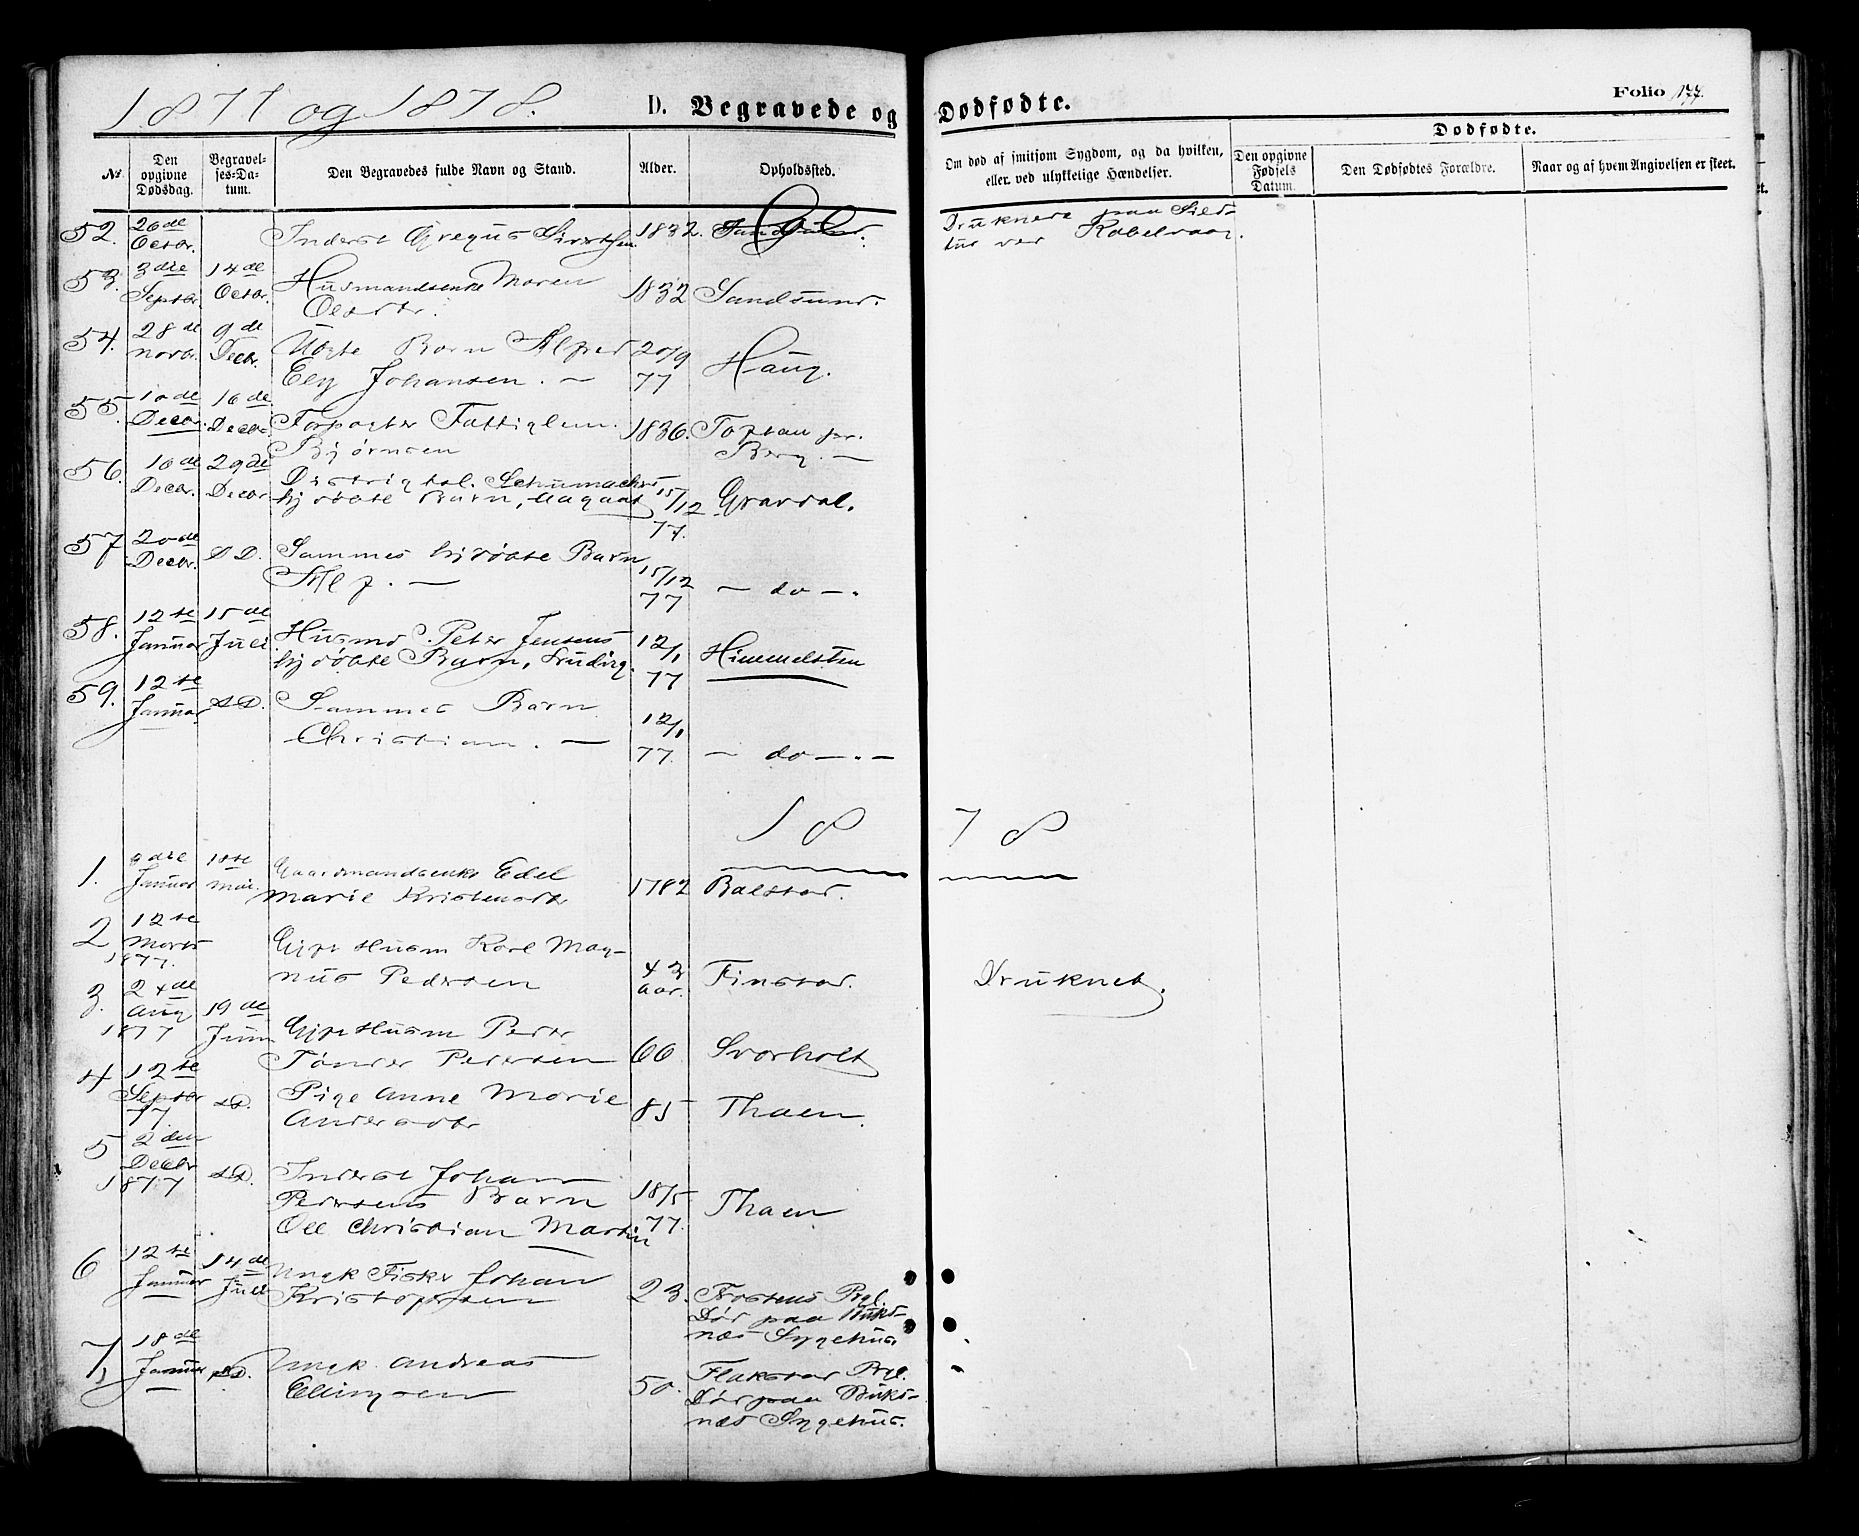 1877 og 1878.
D. Begravede og Dødfødte.
Folio 177.
No.
Den opgivne Dødsdag.
Begravelses-Datum.
Den Begravedes fulde Navn og Stand.
Alder.
Opholdssted.
Om død af smitsom Sygdom, og da hvilken, eller ved ulykkelige Hændelser.
Dødfødte.
Den opgivne Fødsels Datum.
Den Dødfødtes Forældre.
Naar og af hvem Angivelsen er skeet.
52. 26de Octbr. Inderst Gregus Sivertsen 1832.
Druknede paa Sild-
tur ved Kabelvaag.
53. 3die Septbr. 14de Octbr. Husmandsenke Maren
Olesdtr. 1832 Sandsund.
54. 28de Novbr. 9de Decbr. Uægte Barn Alfred
Ely Johansen. — 20/9 77 Haug.
55. 10de Decbr. 16de Decbr. Forpagter Fattiglem
Bjørnsen 1836. Toptan pr.
Berg. —
56. 16de Decbr. 29de Decbr. Distrigtsl. Schumachers
hjdøbte Barn, Aagaat 15/12 77. Gravdal.
57 20de Decbr. S D. Sammes hjdøbte Barn
Alf. — 15/12 77 — do —.
58. 12te Januar 15de Juli Husmd. Peter Jensens
hjdøbte Barn, 12/1 77 Himmelsten
59. 12te Januar S D. Sammes Barn
Christian. — 12/1 77. — do —.—
1878
1. 3die Januar 18te Mai. Gaardmandsenke Edel
Marie Kristensdtr 1782 Balstad.
2 12te Marts 1877. Gift Husm Karl Mag-
nus Pedersen 43 Aar. Finstad. Druknet.
3. 24de Aug 1877 19de Juni Gift Husm Peder
Tønder Pedersen 66. Svarholt
4 12te Septbr 77. S D. Pige Anne Marie
Andersdtr 85 Thaen.
5 2den Decbr 1877 S D. Inderst Johan
Pedersens Barn
Ole Christian Martin 18/5 77. Thaen
6 12te Januar 14de Juli Ungk Fisker Johan
Kristophersen 23. Frostens Pgl.
Død paa Buks-
næs Sygehus.
7, 18de Januar S D. Ungk. Andreas
Ellingsen 50. Flakstad Pgl.
Død paa Buks-
næs Sygehus.